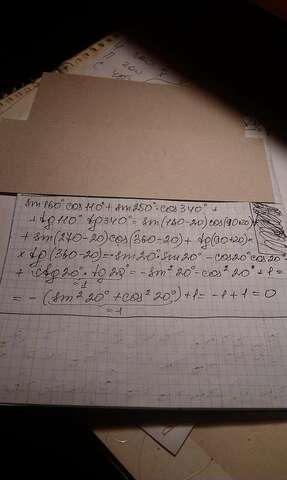 sin160°cos110° + sin250°·cos340° +
+ tg110° tg340° = sin(180-20)cos(90+20)+
+ sin(270-20)cos(360-20) + tg(90+20)×
× tg(360-20) = -sin20°·sin20° - cos20°cos20°+
+ ctg20°·tg20° = -sin²20° - cos²20° + 1 =
=1
= -(sin²20° + cos²20°) + 1 = -1 + 1 = 0
=1